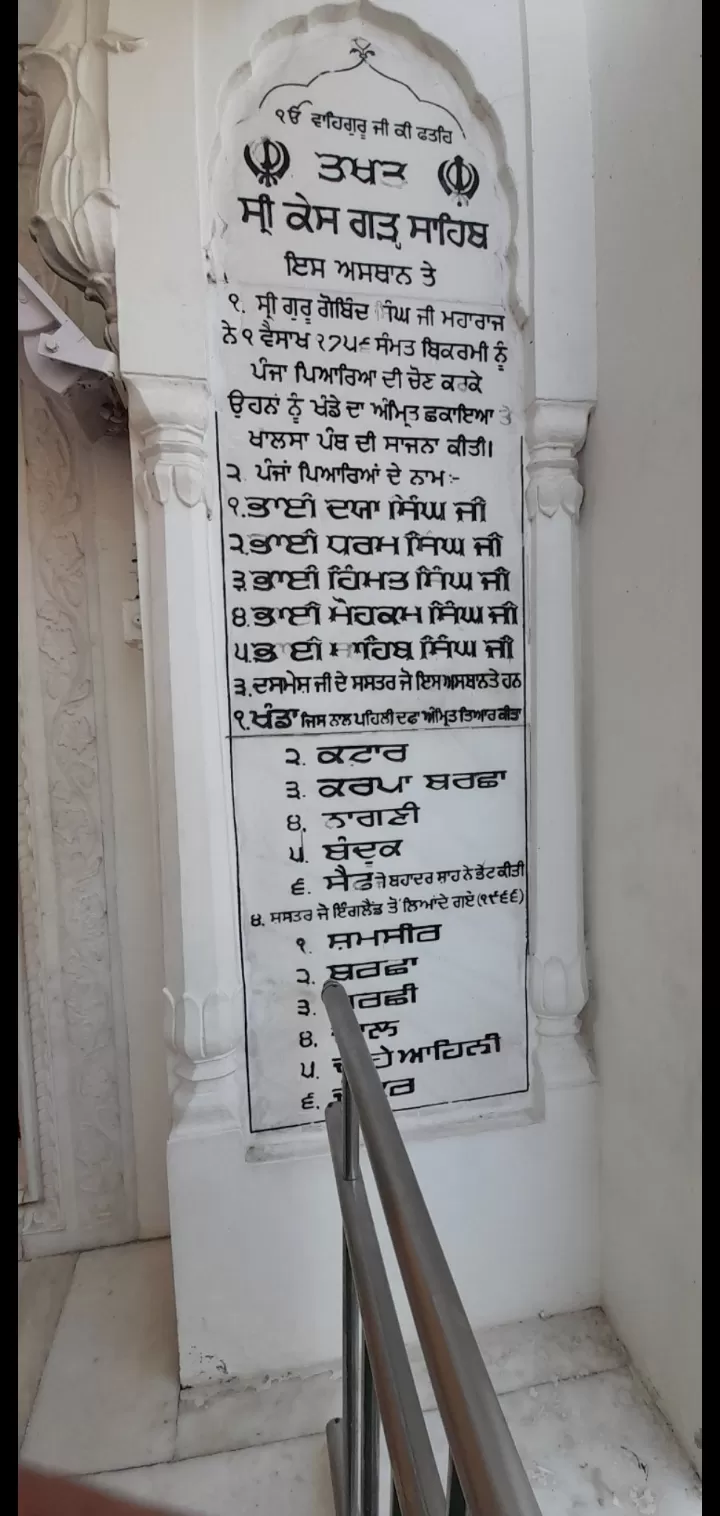 ੴ ਵਾਹਿਗੁਰੂ ਜੀ ਕੀ ਫਤਹਿ
ਤਖਤ
ਸ੍ਰੀ ਕੇਸ ਗੜ੍ਹ ਸਾਹਿਬ
ਇਸ ਅਸਥਾਨ ਤੇ
੧. ਸ੍ਰੀ ਗੁਰੂ ਗੋਬਿੰਦ ਸਿੰਘ ਜੀ ਮਹਾਰਾਜ
ਨੇ ੧ ਵੈਸਾਖ ੧੭੫੬ ਸੰਮਤ ਬਿਕਰਮੀ ਨੂੰ
ਪੰਜਾ ਪਿਆਰਿਆ ਦੀ ਚੋਣ ਕਰਕੇ
ਉਹਨਾਂ ਨੂੰ ਖੰਡੇ ਦਾ ਅੰਮ੍ਰਿਤ ਛਕਾਇਆ ਤੇ
ਖਾਲਸਾ ਪੰਥ ਦੀ ਸਾਜਨਾ ਕੀਤੀ।
੨. ਪੰਜਾਂ ਪਿਆਰਿਆਂ ਦੇ ਨਾਮ:-
੧.ਭਾਈ ਦਯਾ ਸਿੰਘ ਜੀ
੨.ਭਾਈ ਧਰਮ ਸਿੰਘ ਜੀ
੩.ਭਾਈ ਹਿੰਮਤ ਸਿੰਘ ਜੀ
੪.ਭਾਈ ਮੋਹਕਮ ਸਿੰਘ ਜੀ
੫.ਭਾਈ ਸਾਹਿਬ ਸਿੰਘ ਜੀ
੩.ਦਸਮੇਸ਼ ਜੀ ਦੇ ਸਸਤਰ ਜੋ ਇਸ ਅਸਥਾਨ ਤੇ ਹਨ
੧.ਖੰਡਾ ਜਿਸ ਨਾਲ ਪਹਿਲੀ ਦਫਾ ਅੰਮ੍ਰਿਤ ਤਿਆਰ ਕੀਤਾ
੨. ਕਟਾਰ
੩. ਕਰਪਾ ਬਰਛਾ
੪. ਨਾਗਣੀ
੫. ਬੰਦੂਕ
੬. ਸੈਫ ਜੋ ਬਹਾਦਰ ਸ਼ਾਹ ਨੇ ਭੇਂਟ ਕੀਤੀ
੪. ਸਸਤਰ ਜੋ ਇੰਗਲੈਂਡ ਤੋਂ ਲਿਆਂਦੇ ਗਏ (੧੯੬੬)
੧. ਸ਼ਮਸੀਰ
੨. ਬਰਛਾ
੩. ਬਰਛੀ
੪.
੫. ਆਹਿਲੀ
੬.